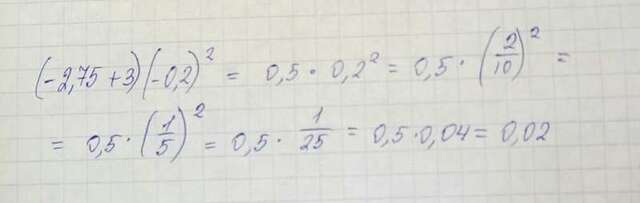 (-2,75+3)(-0,2)² = 0,5 · 0,2² = 0,5 · (2/10)² =
= 0,5 · (1/5)² = 0,5 · 1/25 = 0,5 · 0,04 = 0,02